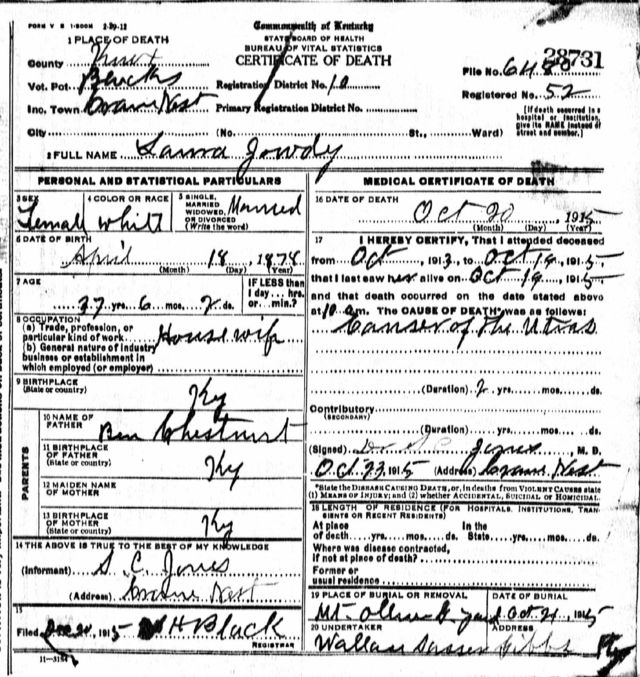 FORM V S 1-500M 2-29-12
Commonwealth of Kentucky
STATE BOARD OF HEALTH
BUREAU OF VITAL STATISTICS
CERTIFICATE OF DEATH
28731
1 PLACE OF DEATH
County Knox
Vot. Pct.
Inc. Town Crane Nest
Registration District No. 10
Primary Registration District No.
File No.
Registered No. 52
[If death occurred in a hospital or institution, give its NAME instead of street and number.]
City (No. St., Ward)
2 FULL NAME Laura Jowdy
PERSONAL AND STATISTICAL PARTICULARS
3 SEX Femall
4 COLOR OR RACE Whitt
5 SINGLE, MARRIED WIDOWED, OR DIVORCED (Write the word) Married
6 DATE OF BIRTH April 18, 1878
(Month) (Day) (Year)
7 AGE 37 yrs. 6 mos. 2 ds.
IF LESS than 1 day... hrs. or... min.?
8 OCCUPATION
(a) Trade, profession, or particular kind of work House wife
(b) General nature of industry business or establishment in which employed (or employer)
9 BIRTHPLACE (State or country) Ky
PARENTS
10 NAME OF FATHER Ben Chestnut
11 BIRTHPLACE OF FATHER (State or country) Ky
12 MAIDEN NAME OF MOTHER
13 BIRTHPLACE OF MOTHER (State or country) Ky
14 THE ABOVE IS TRUE TO THE BEST OF MY KNOWLEDGE
(Informant) S. C. Jones
(Address) Crane Nest
15
Filed 24, 1915 H Black
REGISTRAR
11-3184
MEDICAL CERTIFICATE OF DEATH
16 DATE OF DEATH Oct 20, 1915
(Month) (Day) (Year)
17 I HEREBY CERTIFY, That I attended deceased
from Oct, 1913, to Oct 19, 1915
that I last saw her alive on Oct 19, 1915
and that death occurred on the date stated above
at 10 am. The CAUSE OF DEATH* was as follows:
Canser of the Utras
(Duration) 2 yrs. mos. ds.
Contributory
(SECONDARY)
(Duration) yrs. mos. ds.
(Signed) Jones, M. D.
Oct. 23, 1915 (Address) Crane Nest
*State the DISEASE CAUSING DEATH, or, in deaths from VIOLENT CAUSES state
(1) MEANS OF INJURY; and (2) whether ACCIDENTAL, SUICIDAL or HOMICIDAL.
18 LENGTH OF RESIDENCE (FOR HOSPITALS, INSTITUTIONS, TRANSIENTS OR RECENT RESIDENTS)
At place of death yrs. mos. ds. In the State yrs. mos. ds.
Where was disease contracted, if not at place of death?
Former or usual residence
19 PLACE OF BURIAL OR REMOVAL Mt. Olive G. yard
DATE OF BURIAL Oct. 21, 1915
20 UNDERTAKER Wallace
ADDRESS Gibbs Ky